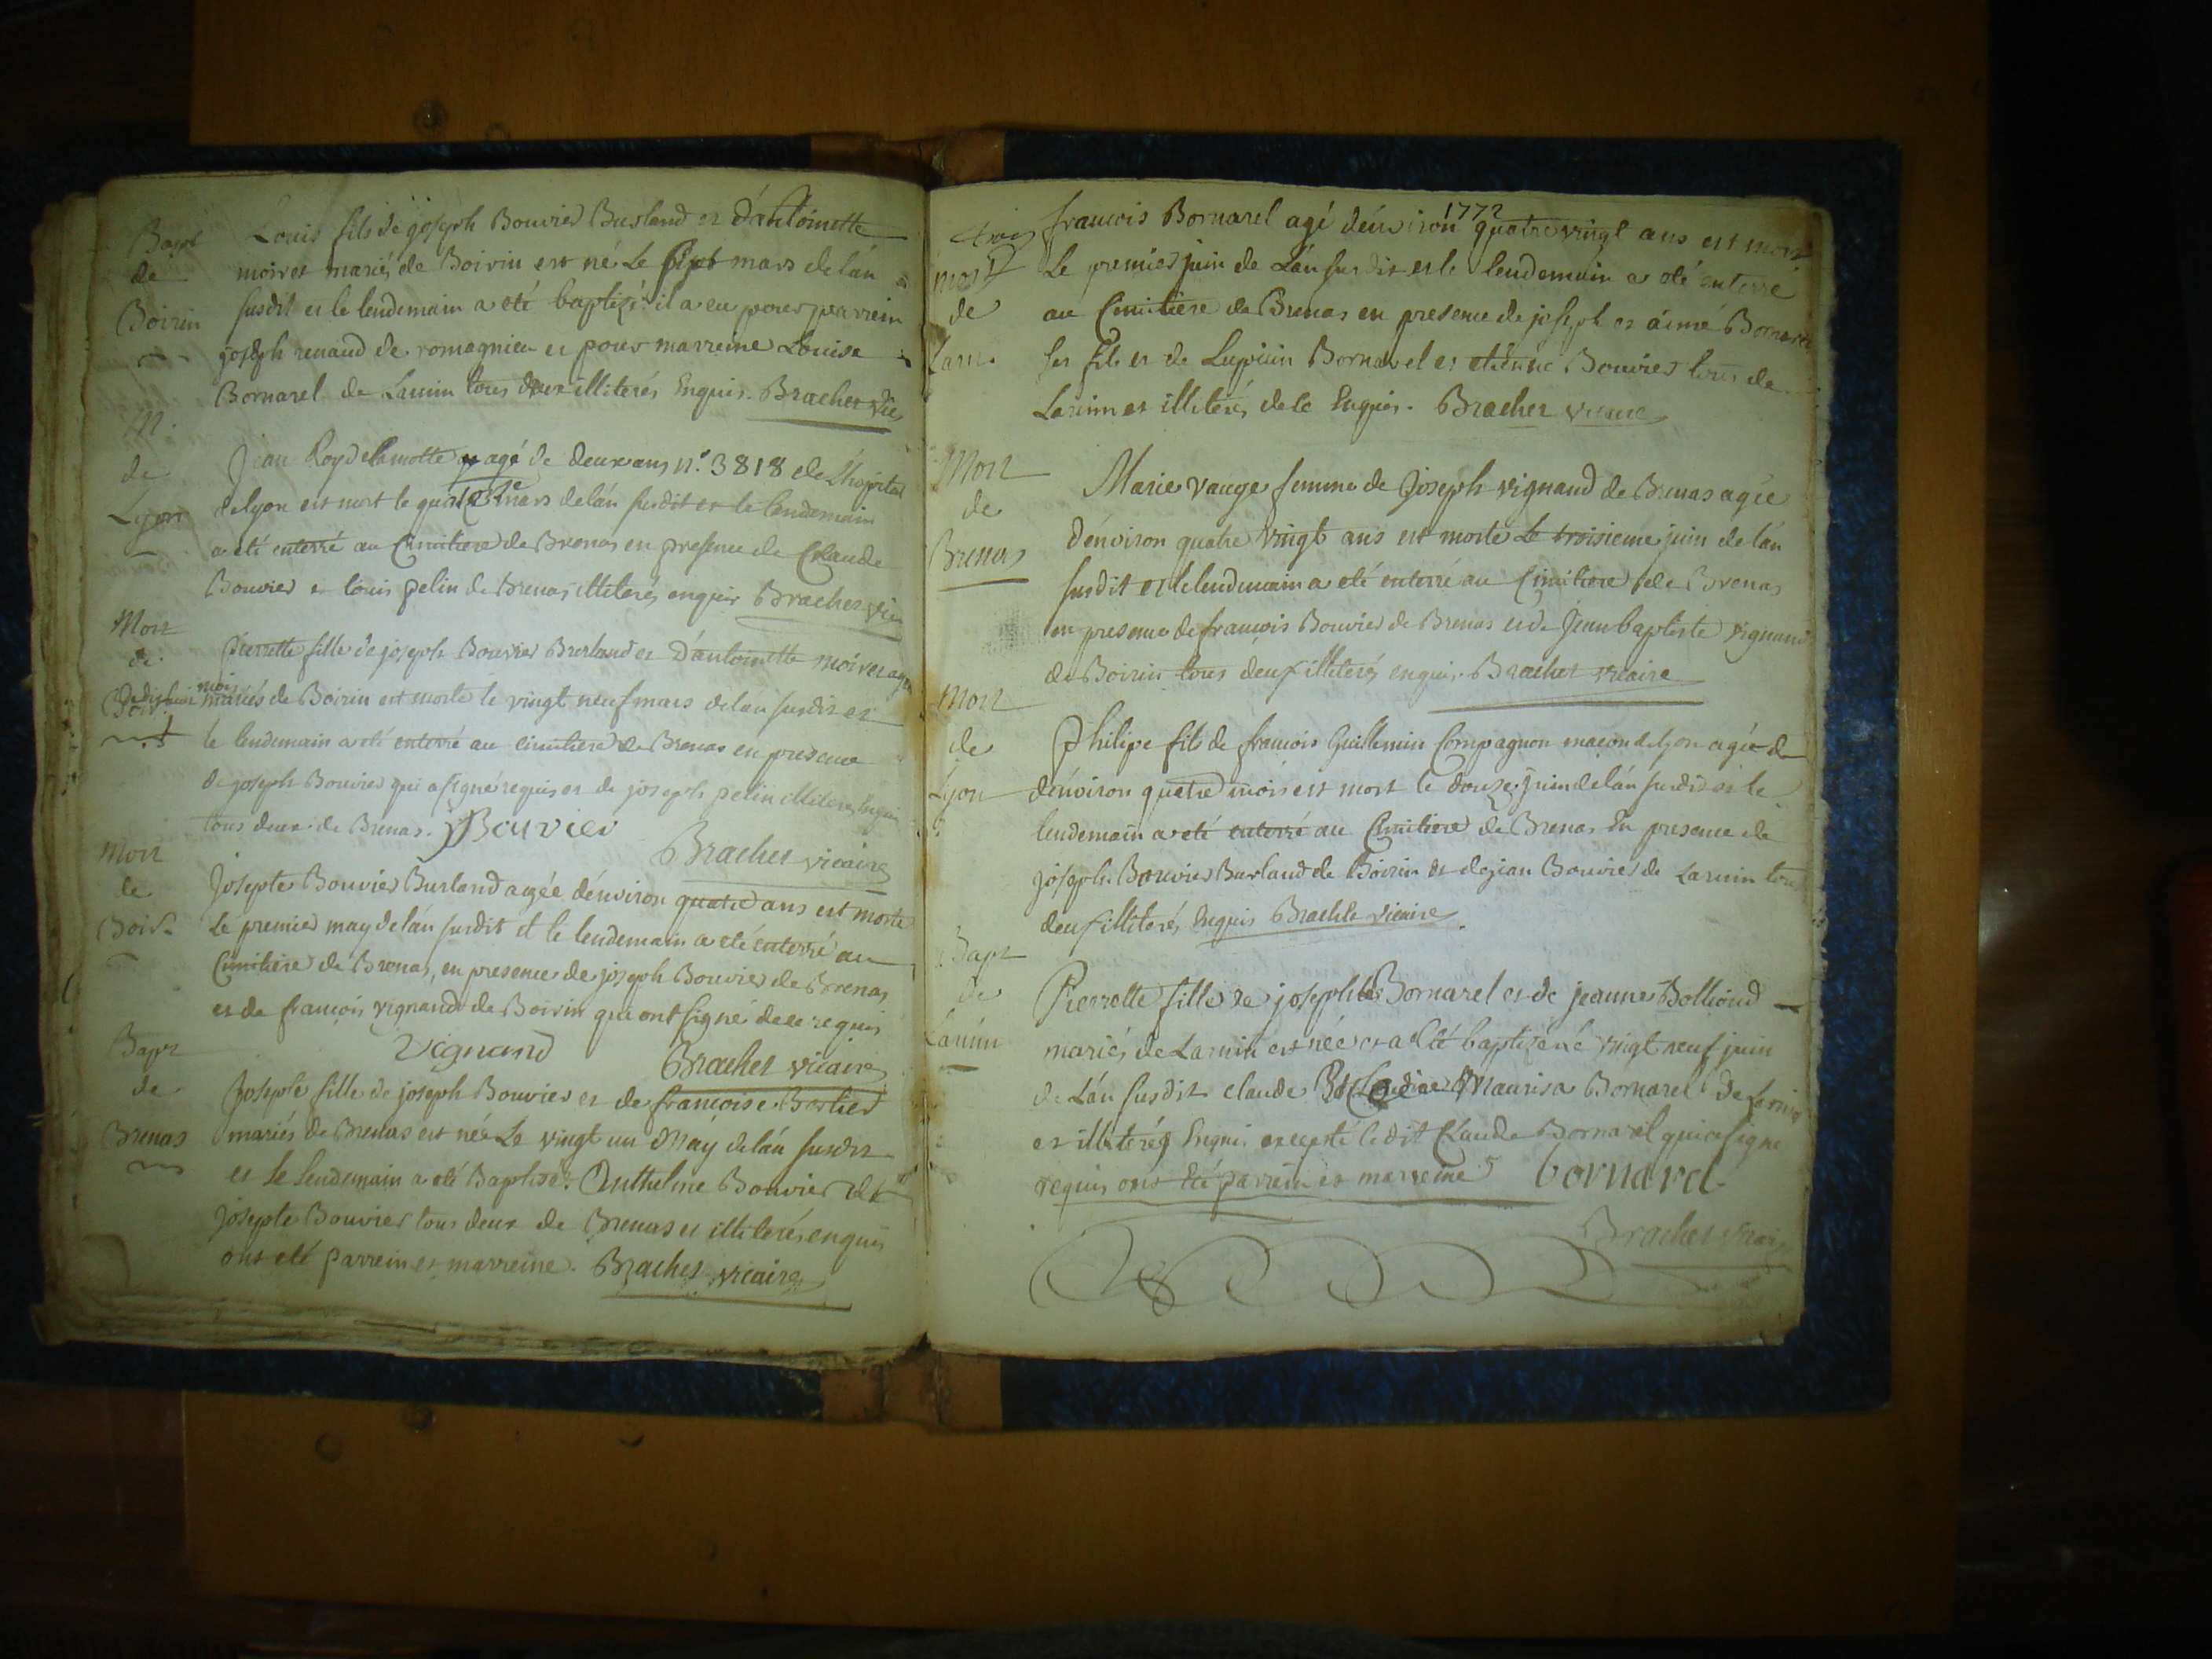 Bapt
de
Boirin
Louis fils de joseph Bouvier Burland et d'antoinette
moiret mariés de Boirin est né Le sept mars de l'an
susdit et le lendemain a eté baptizé il a eu pour parrein
joseph renaud de romagnieu et pour marreine Louise
Bornarel de Lamin tous deux illiterés Enquis. Bracher vic
M.
de
Lyon
Jean Roy delamotte agé de deux ans n.o 3818 de L'hopital
de lyon est mort le quatorze mars de lán susdit et le lendemain
a eté enterré au Cimitiere de Brenas en presence de Claude
Bouvier et louis pelin de Brenas illiterés enquis Bracher vic
Mort
de
Boir.
Pierrette fille de joseph Bouvier Burland et D'antoinette moiret agée
de dix huit mois mariés de Boirin est morte le vingt neuf mars de lan susdit et
le lendemain a eté enterré au cimitiere de Brenas en presence
de joseph Bouvier qui a signé requis et de joseph pelin illiteré Enquis
tous deux de Brenas. JBouvier
Bracher vicaire
Mort
de
Boir.
Josepte Bouvier Burland agée d'environ quatre ans est morte
le premier may de lán susdit et le lendemain a eté enterré au
Cimitiere de Brenas, en presence de joseph Bouvier de Brenas
et de francois vignand de Boirin qui ont signé de ce requis
Vignand Bracher vicaire
Bapt
de
Brenas
Josepte fille de joseph Bouvier et de francoise Bortier
mariés de Brenas est née Le vingt un May de lán susdit
et le lendemain a eté Baptisé. Anthelme Bouvier et
Josepte Bouvier tous deux de Brenas et illiterés enquis
ont eté parrein et marreine. Bracher vicaire
1772
mort
de
Lam.
francois Bornarel agé d'environ quatre vingt ans est mort
Le premier juin de Lán susdit et le lendemain a eté enterré
au Cimitiere de Brenas en presence de joseph et aimé Bornarel
ses fils et de Lupicin Bornarel et etienne Bouvier tous de
Lamin et illiterés de ce Enquis. Bracher vicaire
Mort
de
Brenas
Marie vauge femme de Joseph vignand de Brenas agée
d'environ quatre vingt ans est morte Le troisieme juin de lán
susdit et le lendemain a eté enterré au Cimitiere de Brenas
en presence de francois Bouvier de Brenas et de Jean baptiste vignand
de Boirin tous deux illiterés enquis. Bracher vicaire
Mort
de
Lyon
Philipe fils de francois Guillemin Compagnon macon de lyon agée de
d'environ quatre mois est mort le douze juin de lán susdit et le
lendemain a eté enterré au Cimitiere de Brenas En presence de
joseph Bouvier Burland de Boirin et de jean Bouvier de Lamin tous
deux illiterés Enquis Bracher vicaire.
Bapt
de
Lamin
Pierrette fille de joseph Bornarel et de jeanne Bolliond
mariés de Lamin est née et a eté baptizée le vingt neuf juin
de Lán susdit claude Maurisa Bornarel de Lamin
et illiterés Enquis excepté ledit Claude Bornarel qui a signé
requis ont eté parrein et marreine bornarel
Bracher vicaire